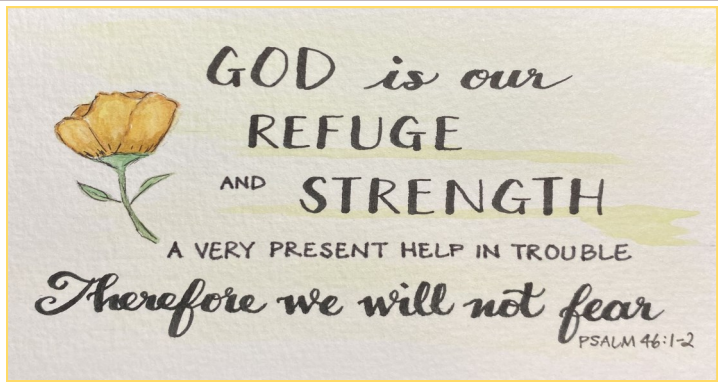 GOD is our
REFUGE
AND STRENGTH
A VERY PRESENT HELP IN TROUBLE
Therefore we will not fear
PSALM 46:1-2